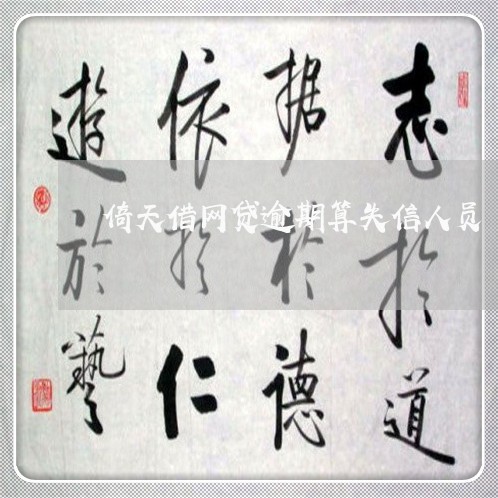 志於道
据於德
依於仁
遊於藝
倚天借网贷逾期算失信人员